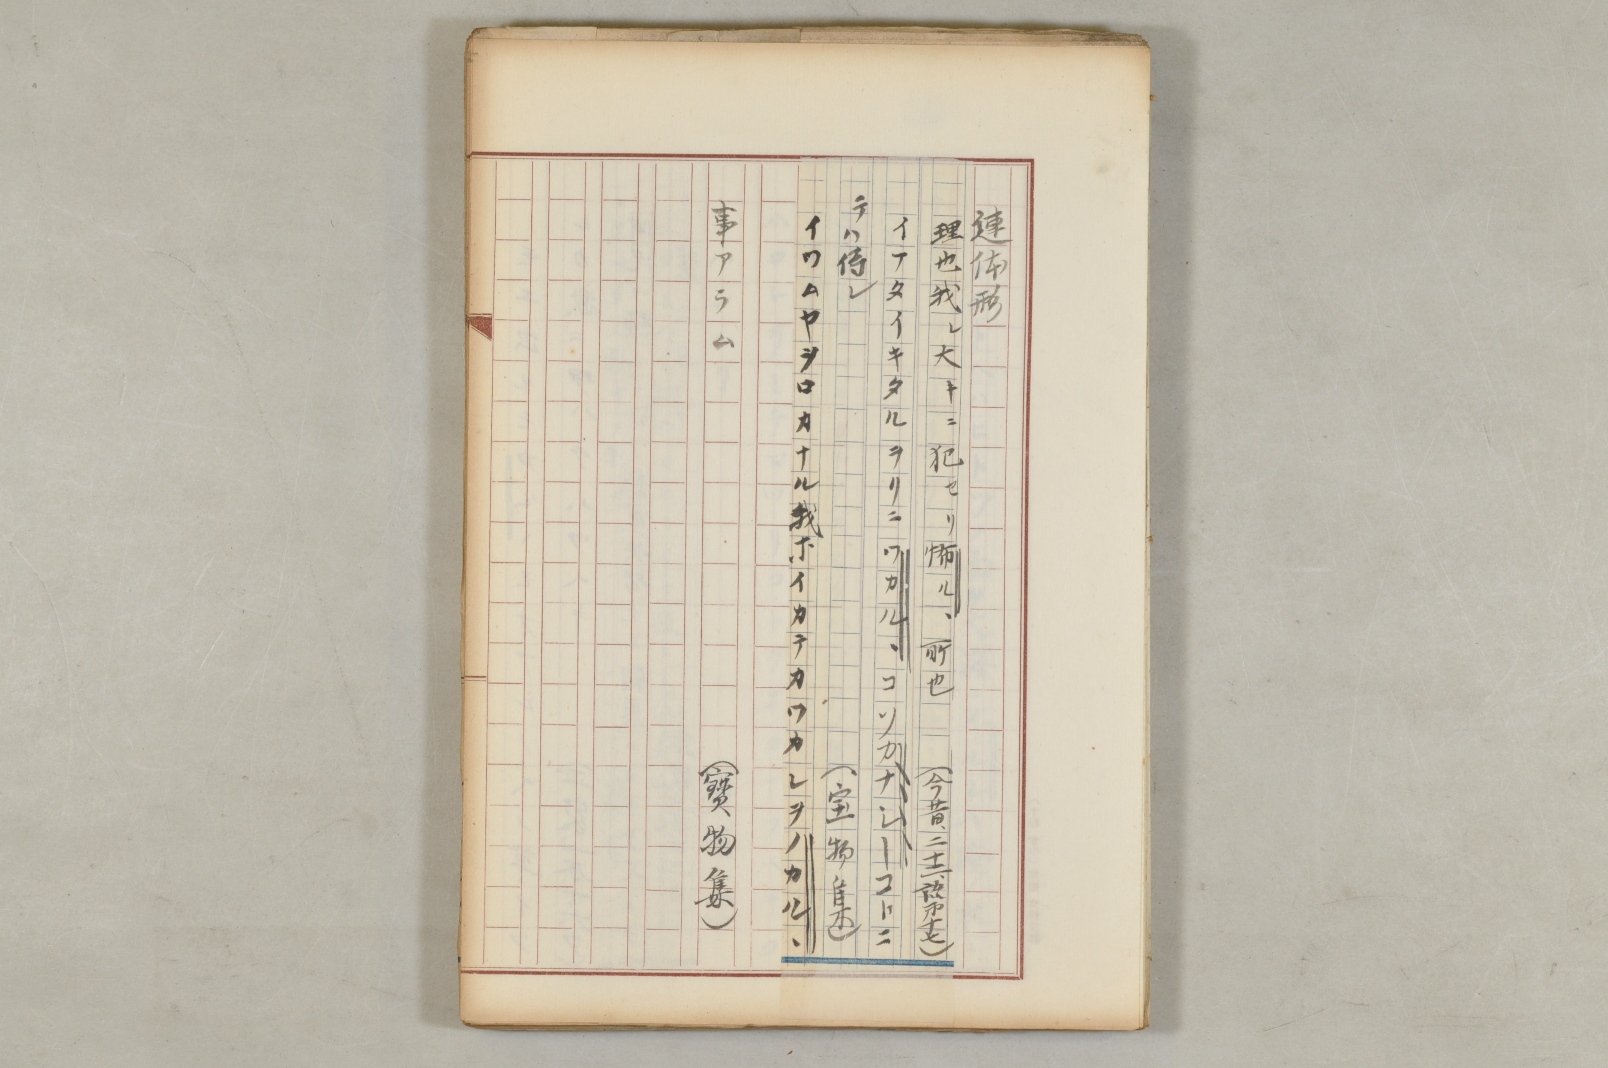 連体形
理也我レ大キニ犯セリ怖ルヽ所也 (今昔、二十二、談第七)
イマタイキタルヲリニワカルヽコソカナシーコトニ
テハ侍レ (宝物集)
イワムヤヲロカナル我ホイカテカワカレヲノカルヽ
事アラム (寶物集)